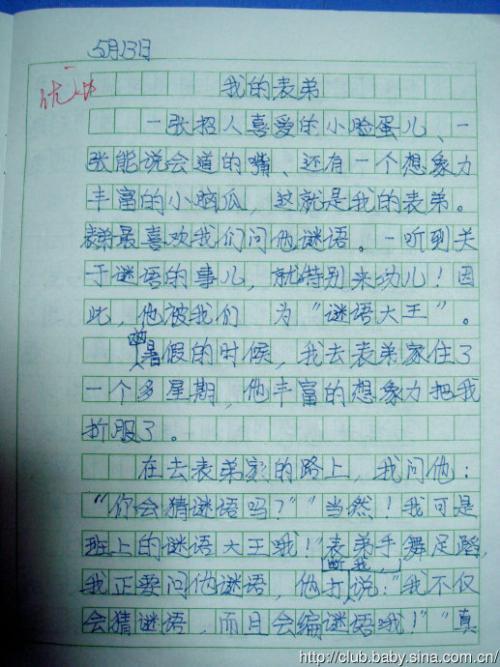 5月13日
优
我的表弟
一张招人喜爱的小脸蛋儿、一
张能说会道的嘴、还有一个想象力
丰富的小脑瓜，这就是我的表弟。
表弟最喜欢我们问他谜语。一听到关
于谜语的事儿，就特别来功儿！因
此，他被我们 为“谜语大王”。
暑假的时候，我去表弟家住了
一个多星期，他丰富的想象力把我
折服了。
在去表弟家的路上，我问他：
“你会猜谜语吗？”“当然！我可是
班上的谜语大王哦！”表弟手舞足蹈，
我正要问他谜语，他打断我，说：“我不仅
会猜谜语，而且会编谜语哦！”“真
http://club.baby.sina.com.cn/